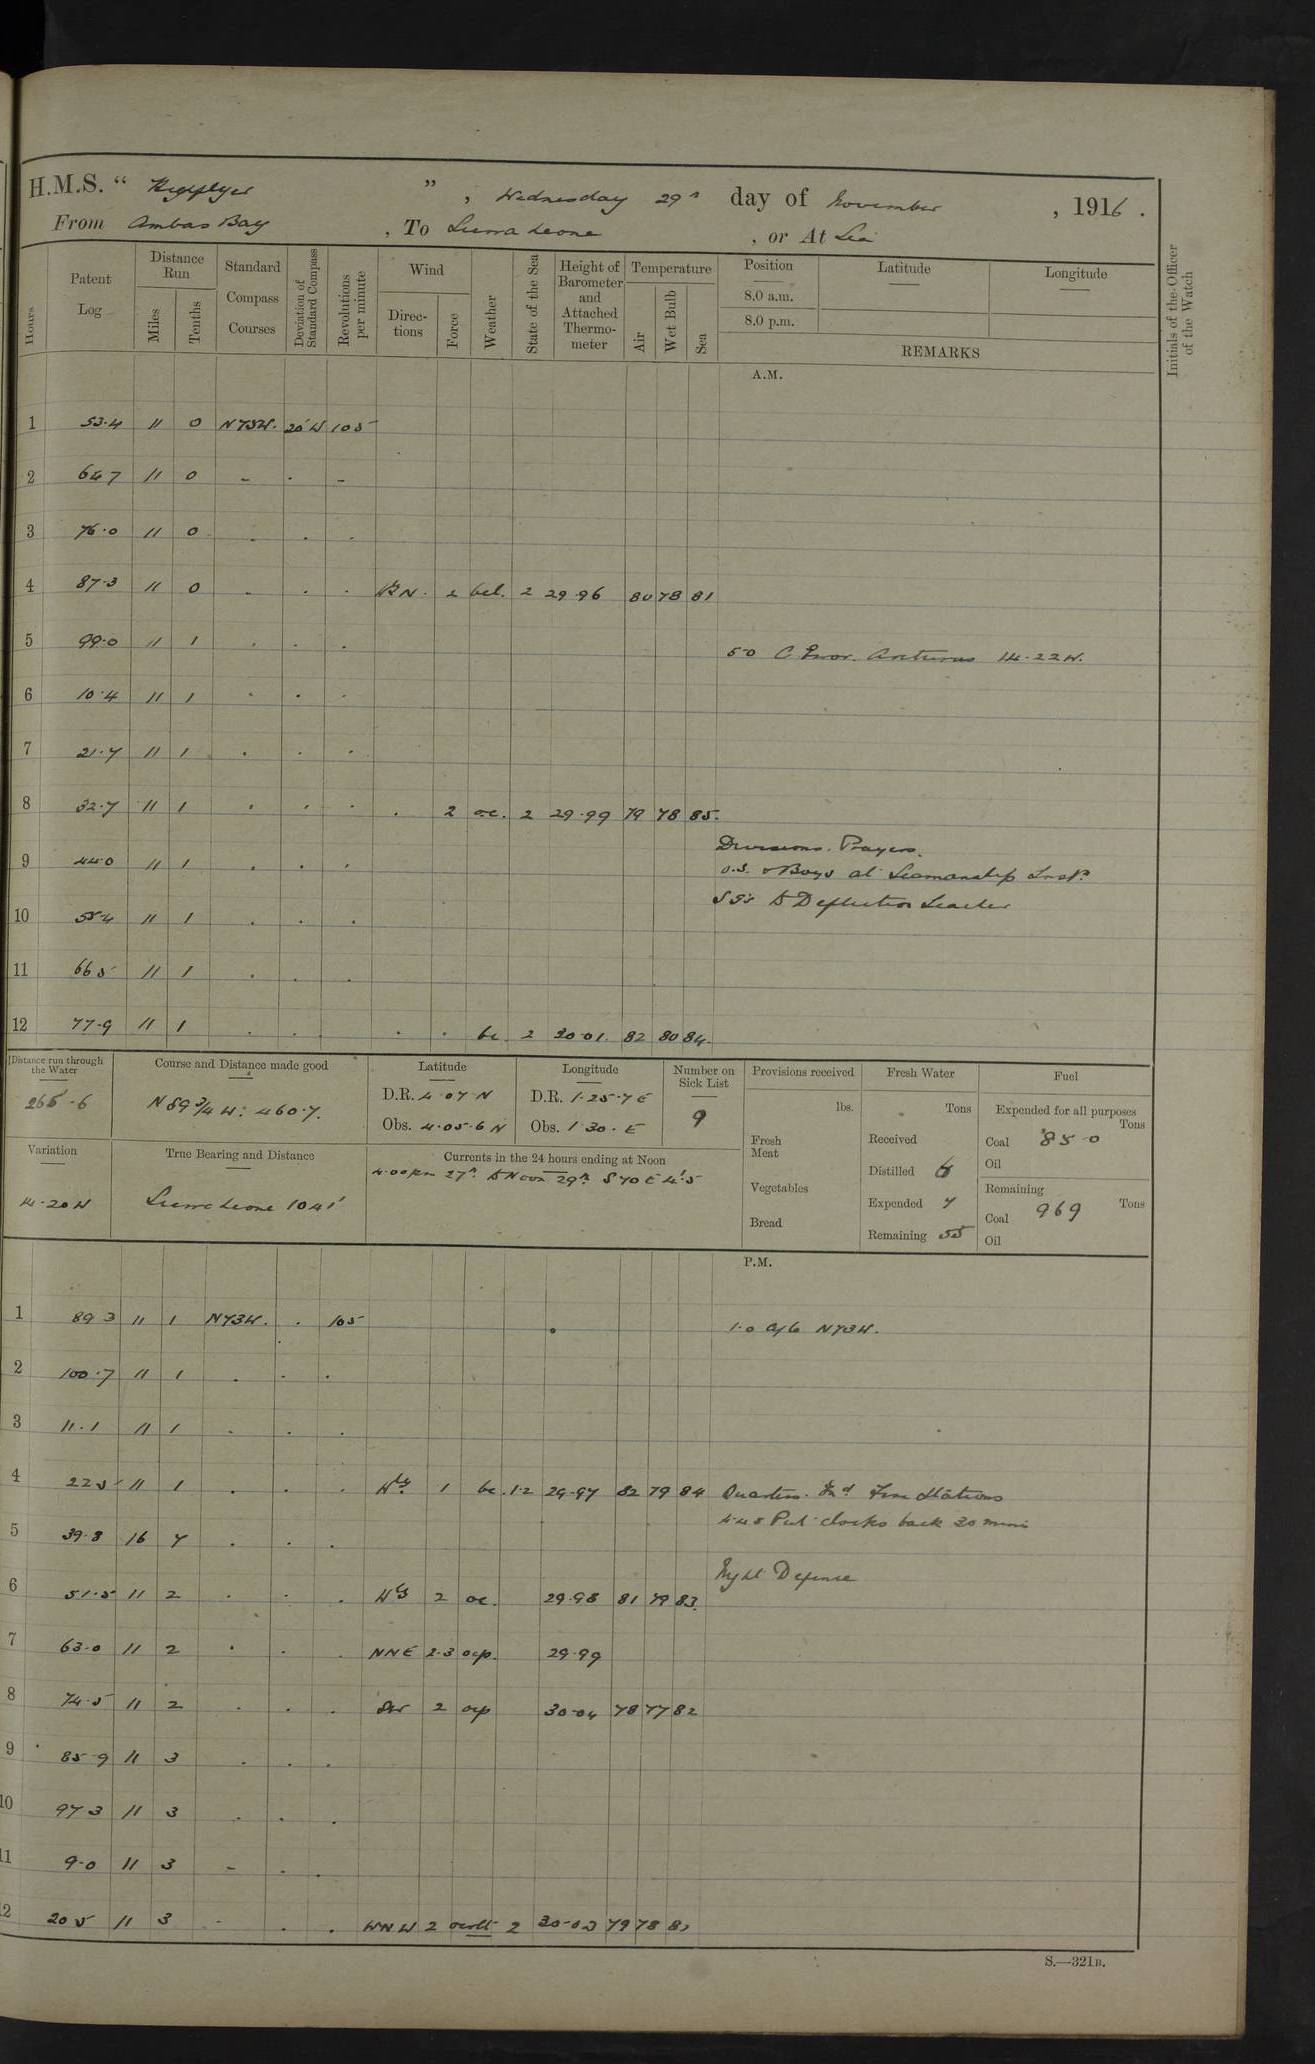 H.M.S. " Highflyer ", Wednesday 29th day of November, 1916.
From Ambas Bay, To Sierra Leone, or At Sea
Hours Patent Log Distance Run Miles Tenths Standard Compass Courses Deviation of Standard Compass Revolutions per minute Wind Directions Force Weather State of the Sea Height of Barometer and Attached Thermometer Temperature Air Wet Bulb Sea Position 8.0 a.m. 8.0 p.m. Latitude Longitude REMARKS Initials of the Officer of the Watch
A.M.
1 53.4 11 0 N73W. 105
2 64 7 11 0 - . -
3 76.0 11 0 . . .
4 87.3 11 0 . . . 2 bcl. 2 29.96 80 78 81
5 99.0 11 1 . . .
5.0 C Error. Arcturus 14.22W.
6 10.4 11 1 . . .
7 21.7 11 1 . . .
8 32.7 11 1 . . . . 2 oc. 2 29.99 79 78 85.
Divisions. Prayers.
9 44.0 11 1 . . .
O.S. & Boys at Seamanship Instn.
10 55.4 11 1 . . .
to Deflection Teacher
11 66 5 11 1 . . .
12 77.9 11 1 . . . . bc. 2 30.01. 82 80 84.
Distance run through the Water
Course and Distance made good
Latitude Longitude Number on Sick List Provisions received Fresh Water Fuel
266.6 N 89 3/4 W: 460.7.
D.R. 4.07 N D.R. 1.25.7 E 9
Obs. 4.05.6 N Obs. 1.30. E
lbs. Tons Expended for all purposes Tons
Fresh Meat Received Coal 85.0
Oil
Variation True Bearing and Distance Currents in the 24 hours ending at Noon
4.00 pm 27th to Noon 29th S 70 E 4'.5
14.20W Sierra Leone 1041'
Distilled
Vegetables Expended 7 Remaining Tons
Coal 969
Bread Remaining 55 Oil
P.M.
1 89 3 11 1 N73W. . 105 1.0 a/c N73W.
2 100.7 11 1 . . .
3 11.1 11 1 . . .
4 22 5 11 1 . . . Wly. 1 bc. 1.2 29.97 82 79 84 Quarters. Fire Stations
4.45 Put clocks back 30 mins
5 39.3 16 7 . . .
Night Defence
6 51.5 11 2 . . . Wly 2 oc. 29.98 81 79 83.
7 63.0 11 2 . . . NNE 2.3 ocp. 29.99
8 74.5 11 2 . . . 2 ocp 30.04 78 77 82
9 85.9 11 3 . . .
10 97 3 11 3 . . .
11 9.0 11 3 - . .
12 20 5 11 3 - . . WNW 2 2 30.03 79 78 81
S.—321B.